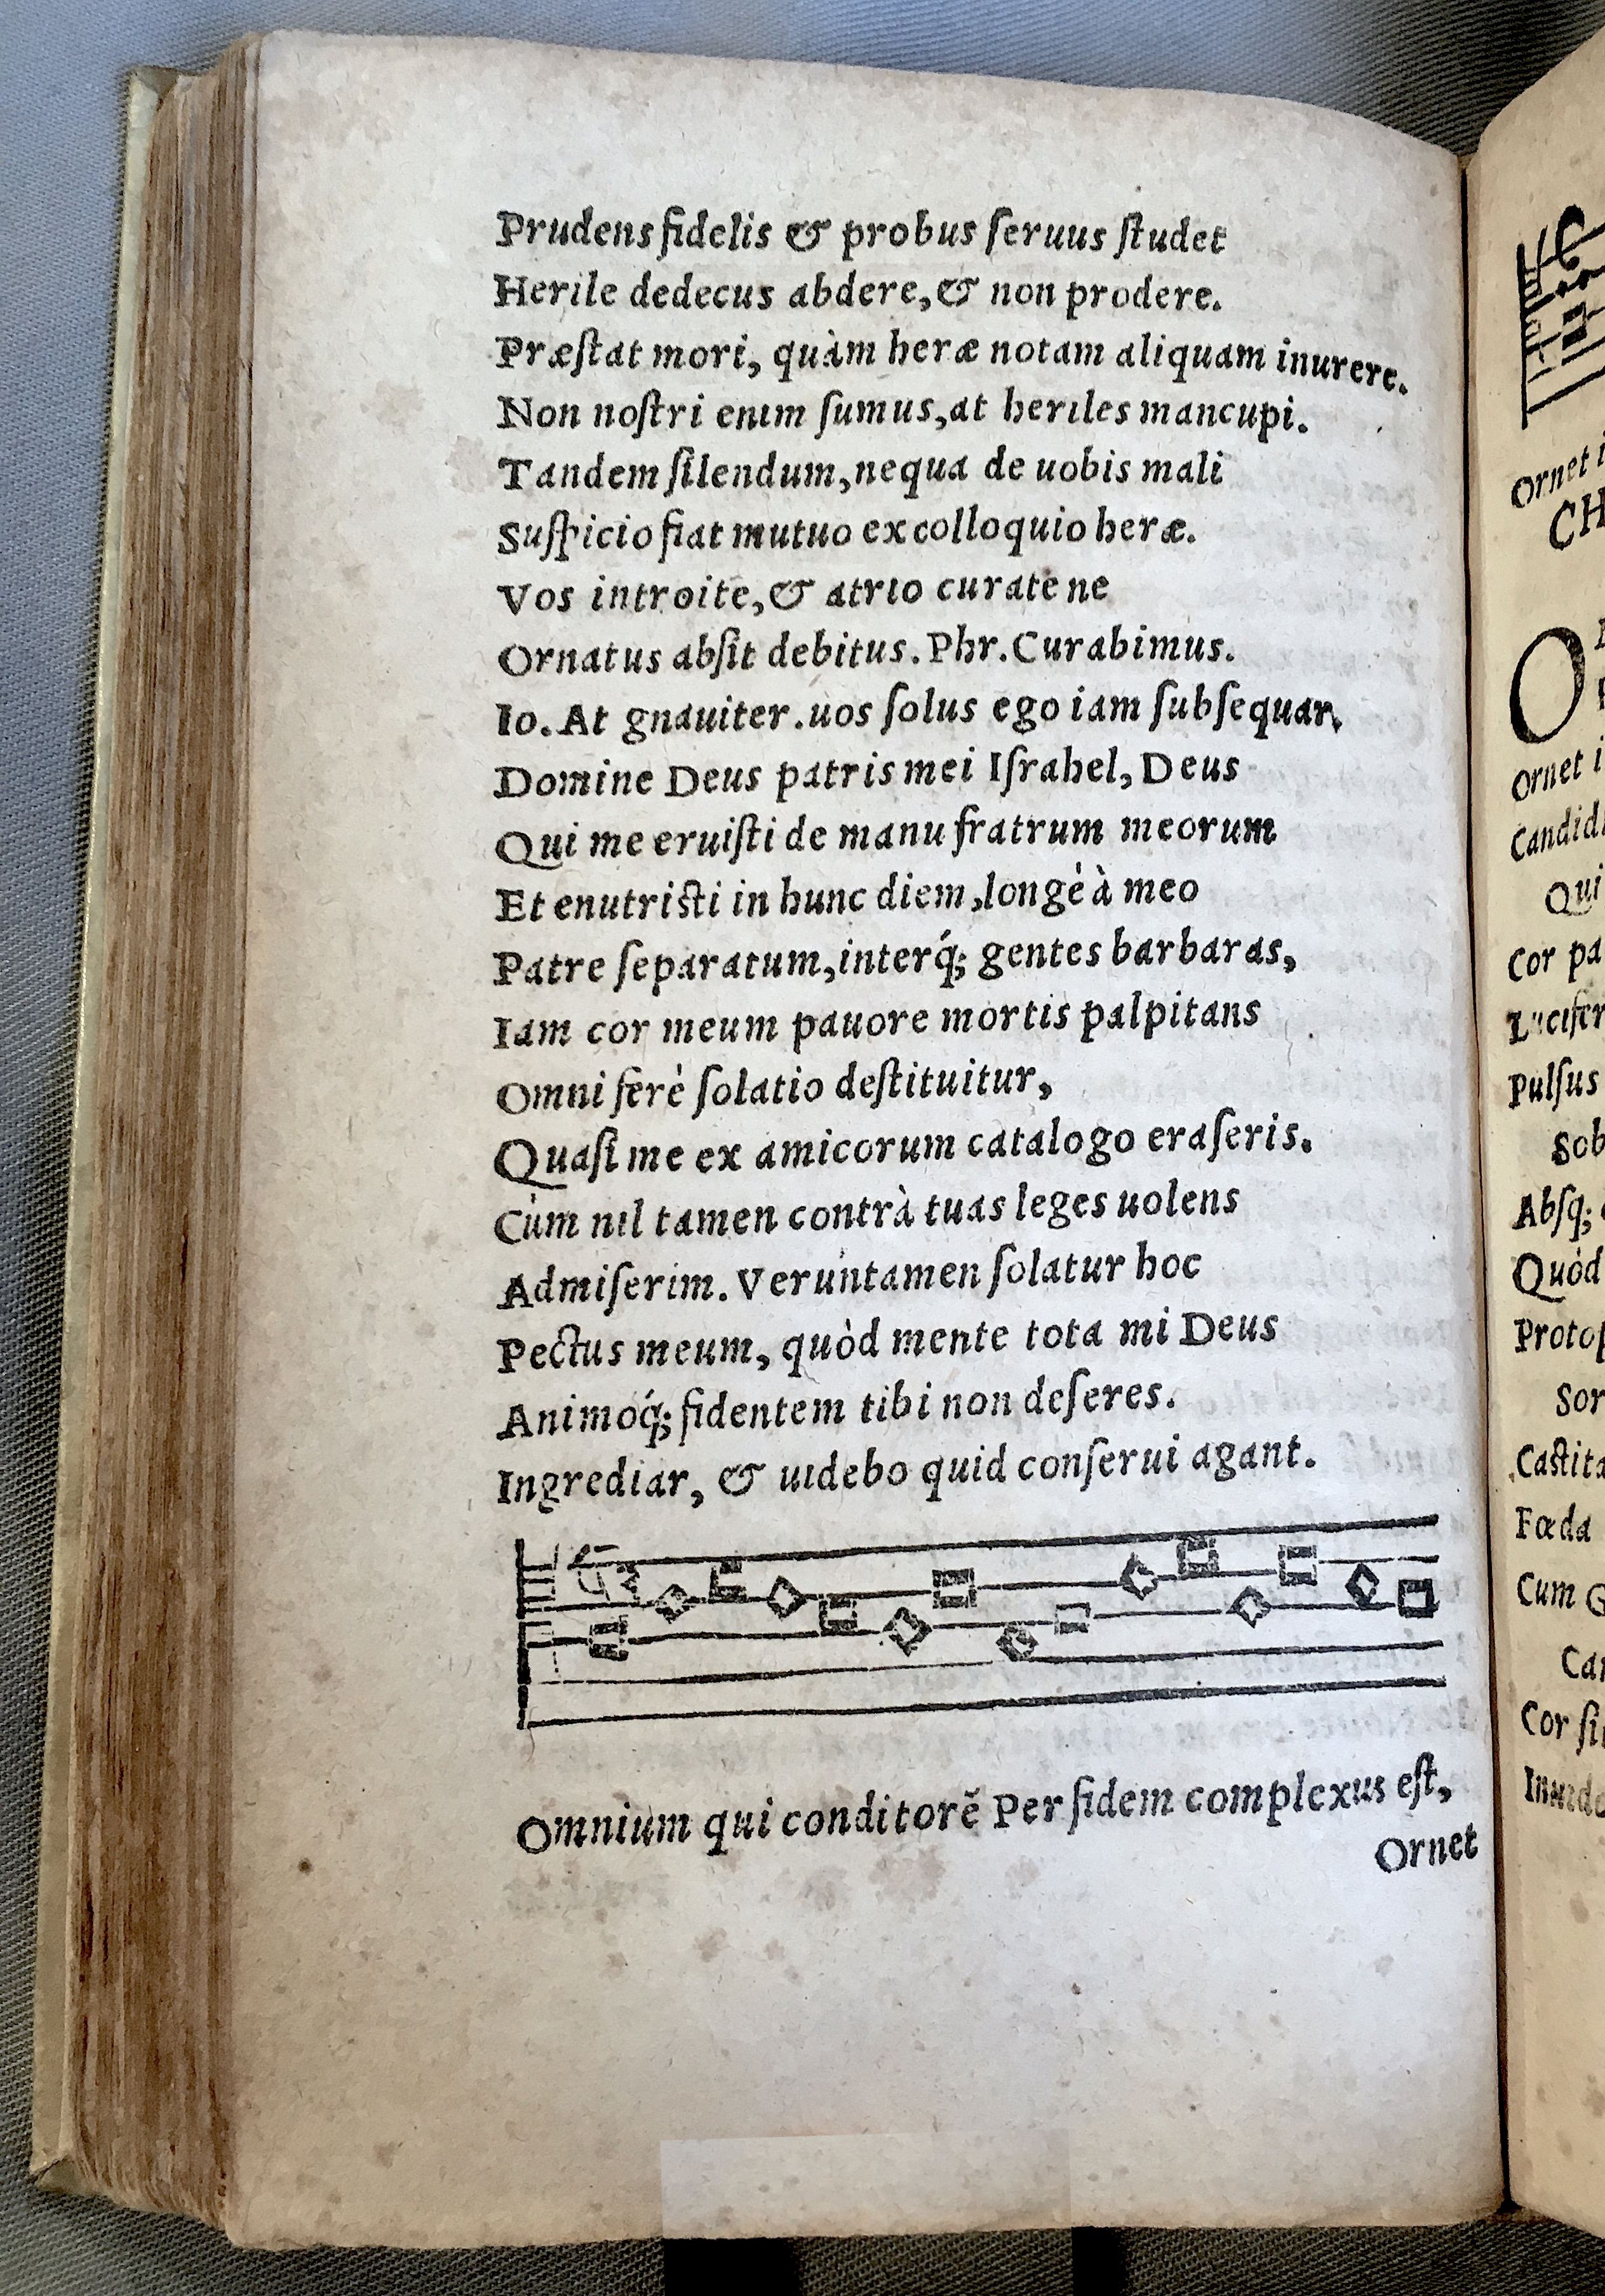 Prudens fidelis & probus ſeruus ſtudet
Herile dedecus abdere, & non prodere.
Præſtat mori, quàm heræ notam aliquam inurere.
Non noſtri enim ſumus, at heriles mancupi.
Tandem ſilendum, nequa de uobis mali
Suſpicio fiat mutuo ex colloquio heræ.
Vos introite, & atrio curate ne
Ornatus abſit debitus. Phr. Curabimus.
Io. At gnauiter. uos ſolus ego iam ſubſequar.
Domine Deus patris mei Iſrahel, Deus
Qui me eruiſti de manu fratrum meorum
Et enutriſti in hunc diem, longè à meo
Patre ſeparatum, interq́; gentes barbaras,
Iam cor meum pauore mortis palpitans
Omni ferè ſolatio deſtituitur,
Quaſi me ex amicorum catalogo eraſeris.
Cùm nil tamen contrà tuas leges uolens
Admiſerim. Veruntamen ſolatur hoc
Pectus meum, quòd mente tota mi Deus
Animoq́; fidentem tibi non deſeres.
Ingrediar, & uidebo quid conſerui agant.
Omnium qui conditorē Per fidem complexus eſt,
Ornet
Ornet i
CH
O
Ornet i
Candid
Qui
Cor pa
Lucifer
Pulſus
Sob
Abſq;
Quòd
Protop
Sor
Caſtita
Fœda
Cum G
Can
Cor ſi